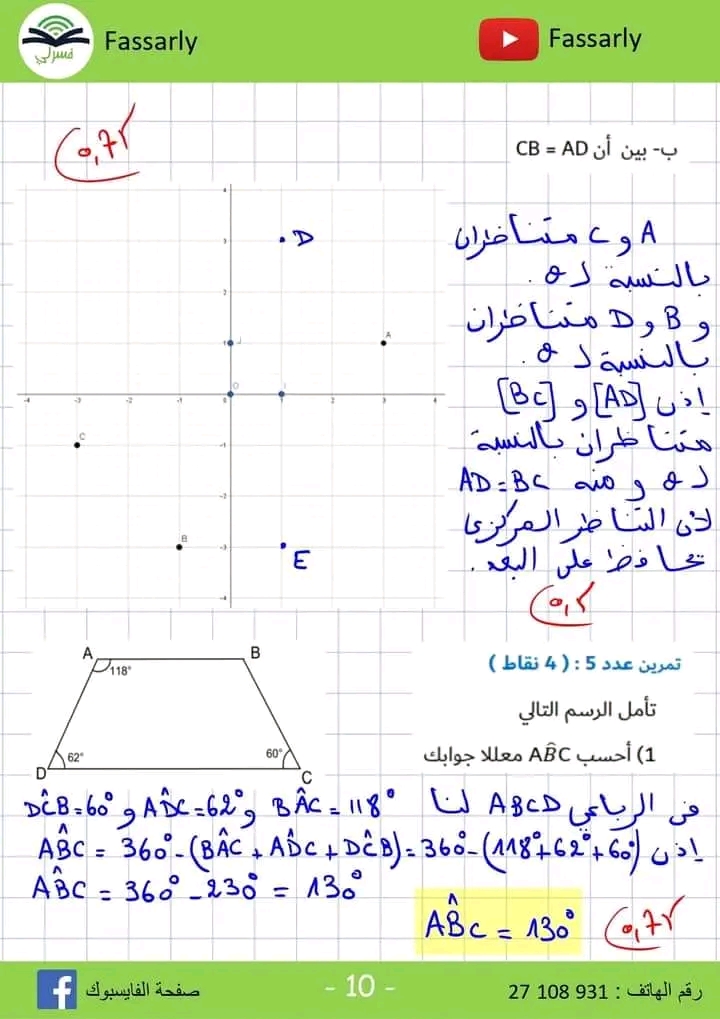 Fassarly
فسرلي
Fassarly
ب- بين أن CB = AD
0,75
A و C متناظران
بالنسبة لـ O.
و B و D متناظران
بالنسبة لـ O.
إذن [AD] و [BC]
متناظران بالنسبة
لـ O و منه AD = BC
لأن التناظر المركزي
يحافظ على البعد.
0,5
4
3
D
2
1
J
A
-4
-3
-2
-1
0
O
I
1
2
3
4
C
-1
-2
B
-3
E
-4
تمرين عدد 5 : ( 4 نقاط )
تأمل الرسم التالي
1) أحسب AB̂C معللا جوابك
A
B
118°
62°
60°
D
C
في الرباعي ABCD لنا BÂC = 118° و AD̂C = 62° و DĈB = 60°
إذن AB̂C = 360° - (BÂC + AD̂C + DĈB) = 360° - (118° + 62° + 60°)
AB̂C = 360° - 230° = 130°
AB̂C = 130°
0,75
صفحة الفايسبوك
- 10 -
رقم الهاتف : 931 108 27